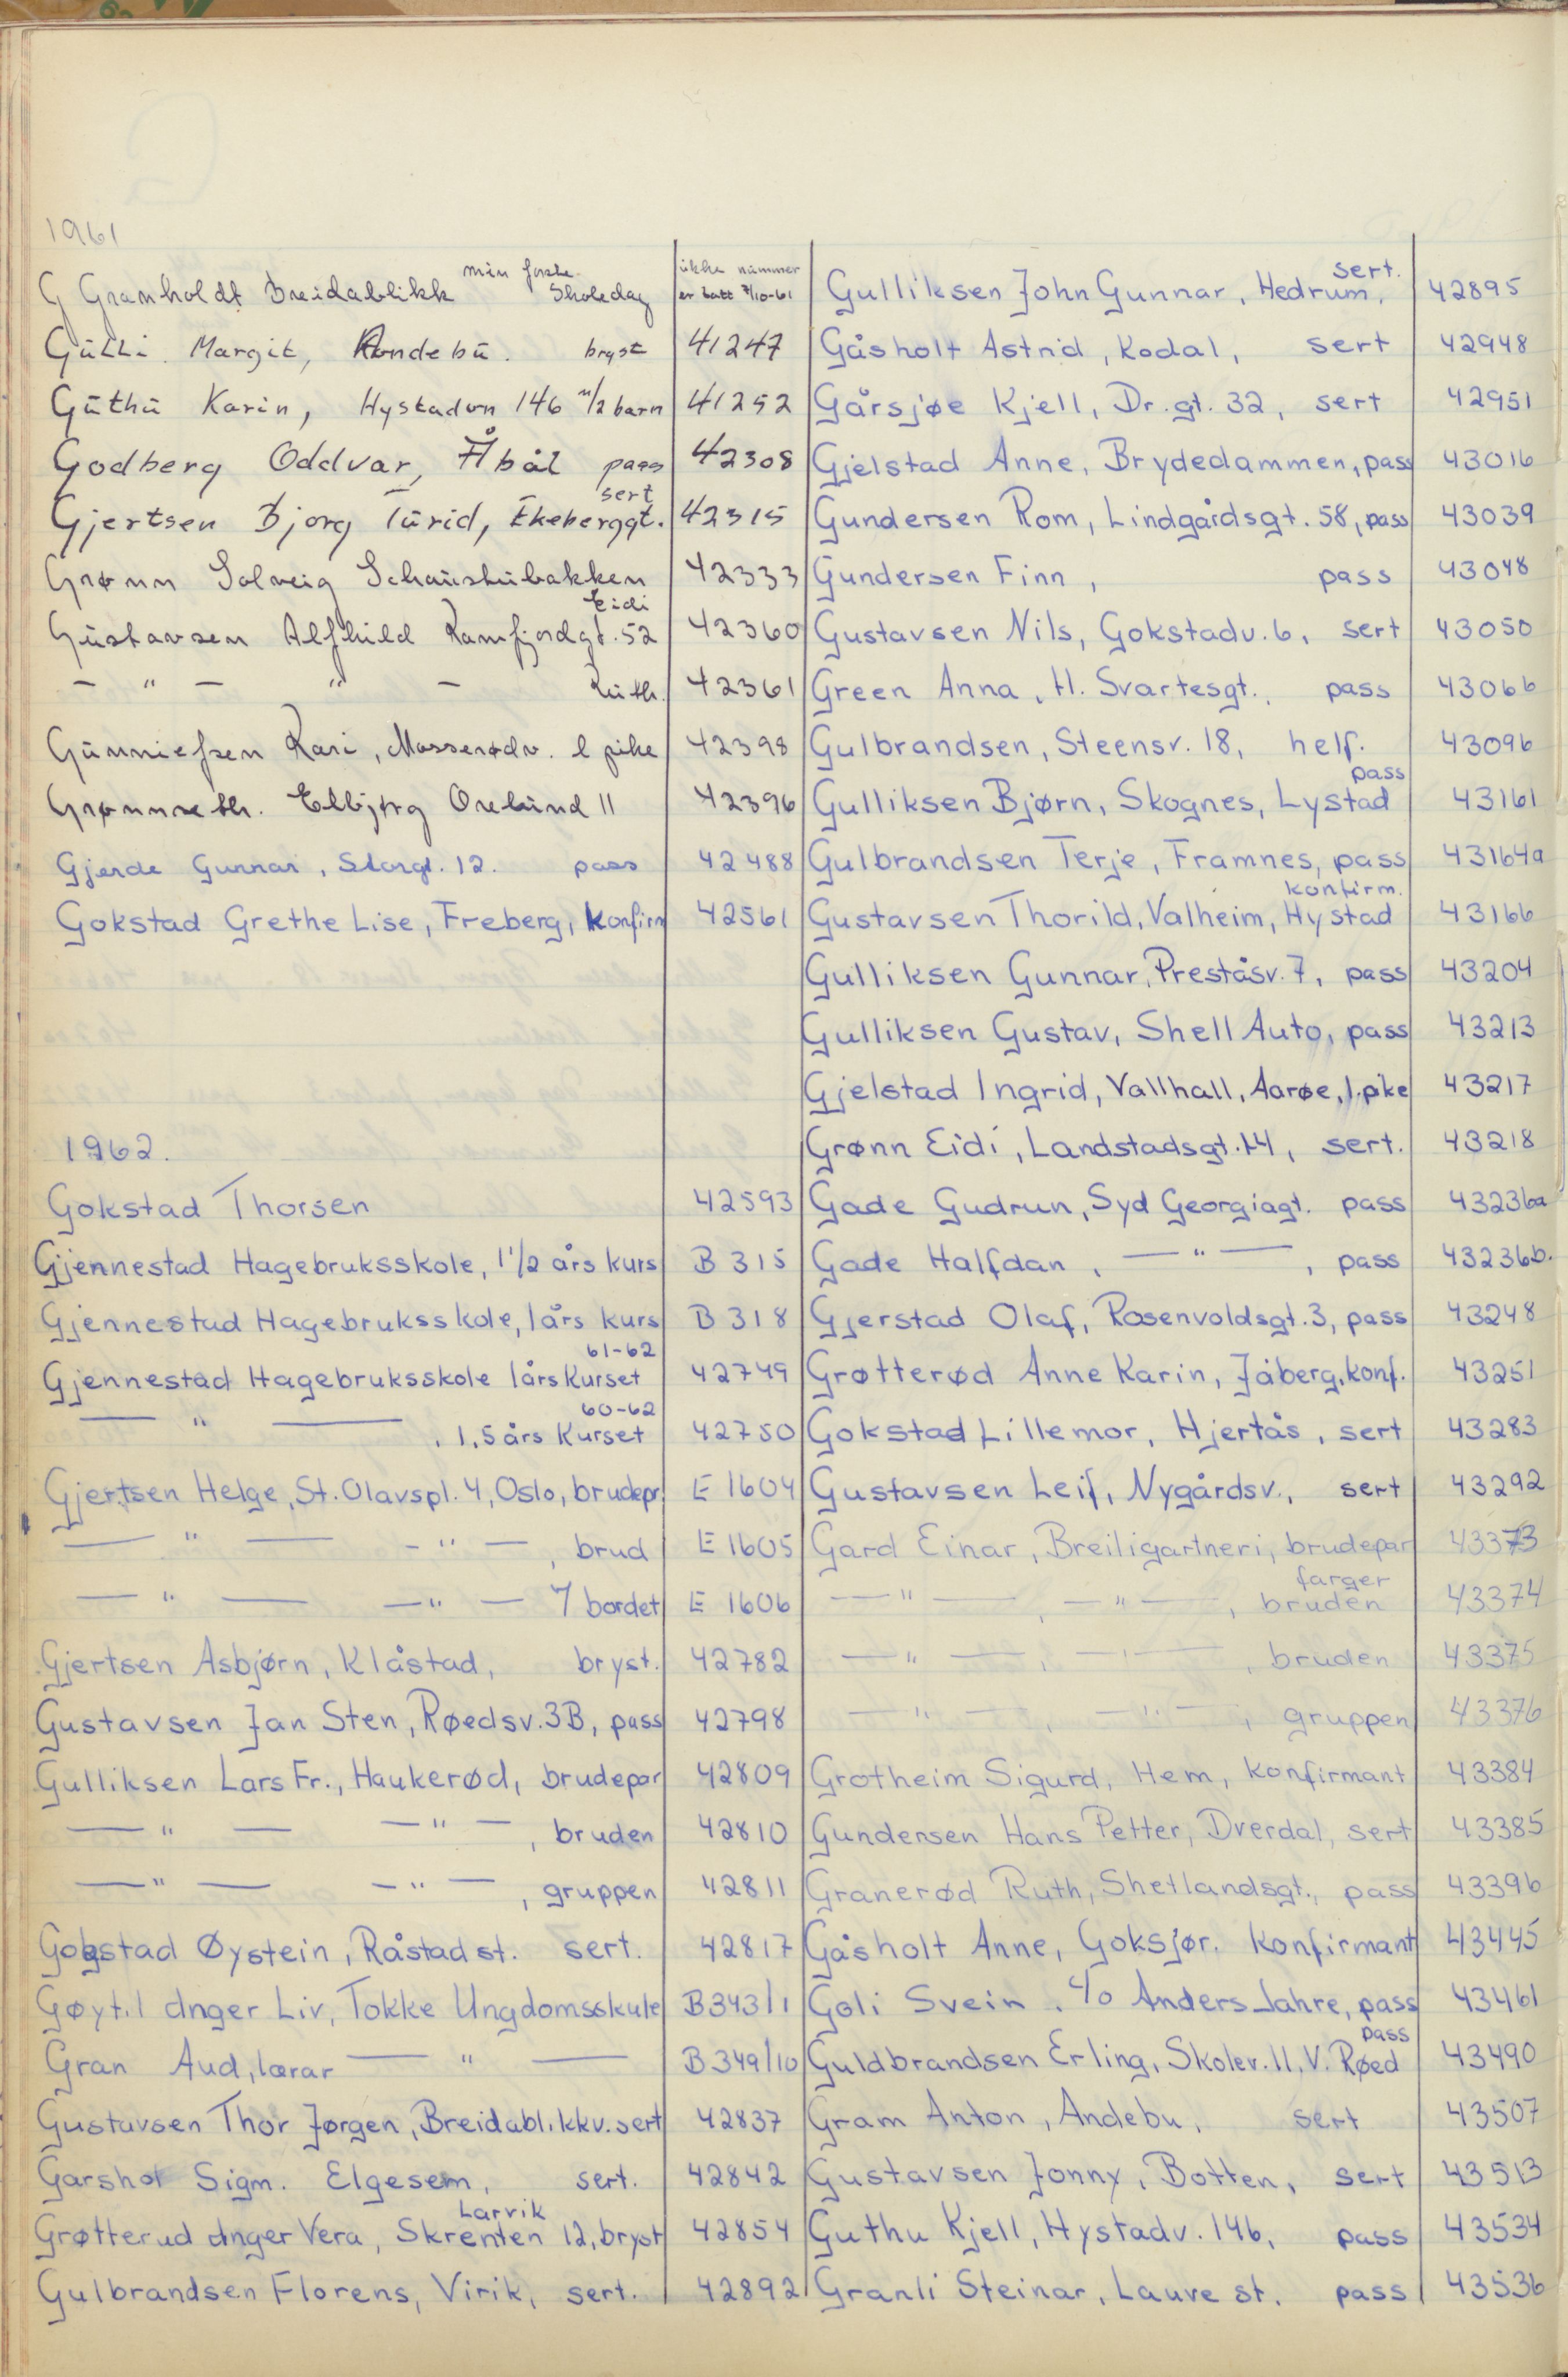 1961
G Granholdt Breidablikk min første Skoledag ikke nummer er tatt 7/10-61
Gulli Margit, Andebu. bryst 41247
Guthu Karin, Hystadvn 146 m/2 barn 41252
Godberg Oddvar, Åbål pass 42308
Gjertsen Bjorg Turid, Ekeberggt. sert 42315
Grønn Solveig Schaustubakken 42333
Gustavsen Alfhild Ramfjordgt. 52 Eidi 42360
— " — " — Ruth. 42361
Gunnießen Kari, Mosserødv. l pike 42398
Grønnseth. Elbjørg Orelund 11 42396
Gjerde Gunnar, Storgt. 12. pass 42488
Gokstad Grethe Lise, Freberg, konfirm 42561
1962.
Gokstad Thorsen 42593
Gjennestad Hagebruksskole, 1 1/2 års kurs B 315
Gjennestad Hagebruksskole, 1 års kurs B 318
Gjennestad Hagebruksskole 1 års Kurset 61-62 42749
— " — , 1,5 års Kurset 60-62 42750
Gjertsen Helge, St. Olavspl. 4, Oslo, brudepr. E 1604
— " — - " — , brud E 1605
— " — — " — 7 bordet E 1606
Gjertsen Asbjørn, Klåstad, bryst. 42782
Gustavsen Jan Sten, Røedsv. 3B, pass 42798
Gulliksen Lars Fr., Haukerød, brudepar 42809
— " — — " — , bruden 42810
— " — — " — , gruppen 42811
Gogstad Øystein, Råstad st. sert. 42817
Gøytil Anger Liv, Tokke Ungdomsskule B343/1
Gran Aud, lærar — " — B349/10
Gustavsen Thor Jørgen, Breidablikkv. sert 42837
Garshol Sigm. Elgesem, sert. 42842
Grøtterud Anger Vera, Skrenten 12, Larvik bryst 42854
Gulbrandsen Florens, Virik, sert. 42892
Gulliksen John Gunnar, Hedrum, sert. 42895
Gåsholt Astrid, Kodal, sert 42948
Gårsjøe Kjell, Dr. gt. 32, sert 42951
Gjelstad Anne, Brydedammen, pass 43016
Gundersen Rom, Lindgårdsgt. 58, pass 43039
Gundersen Finn, pass 43048
Gustavsen Nils, Gokstadv. 6, sert 43050
Green Anna, H. Svartesgt., pass 43066
Gulbrandsen, Steensv. 18, helf. 43096
Gulliksen Bjørn, Skognes, Lystad pass 43161
Gulbrandsen Terje, Framnes, pass 43164a
Gustavsen Thorild, Valheim, Hystad konfirm. 43166
Gulliksen Gunnar, Preståsv. 7, pass 43204
Gulliksen Gustav, Shell Auto, pass 43213
Gjelstad Ingrid, Vallhall, Aarøe, 1. pike 43217
Grønn Eidi, Landstadsgt. 14, sert. 43218
Gade Gudrun, Syd Georgiagt. pass 43236a
Gade Halfdan, — " — , pass 43236b.
Gjerstad Olaf, Rosenvoldsgt. 3, pass 43248
Grøtterød Anne Karin, Jåberg, konf. 43251
Gokstad Lillemor, Hjertås, sert 43283
Gustavsen Leif, Nygårdsv., sert 43292
Gard Einar, Breiligartneri, brudepar 43373
— " — , — " — , bruden farger 43374
— " — , — " — , bruden 43375
— " — , — " — , gruppen 43376
Grotheim Sigurd, Hem, konfirmant 43384
Gundersen Hans Petter, Dverdal, sert 43385
Granerød Ruth, Shetlandsgt., pass 43396
Gåsholt Anne, Goksjør. konfirmant 43445
Goli Svein, c/o Anders Jahre, pass 43461
Guldbrandsen Erling, Skolev. 11, V. Røed pass 43490
Gram Anton, Andebu, sert 43507
Gustavsen Jonny, Botten, sert 43513
Guthu Kjell, Hystadv. 146, pass 43534
Granli Steinar, Lauve st. pass 43536